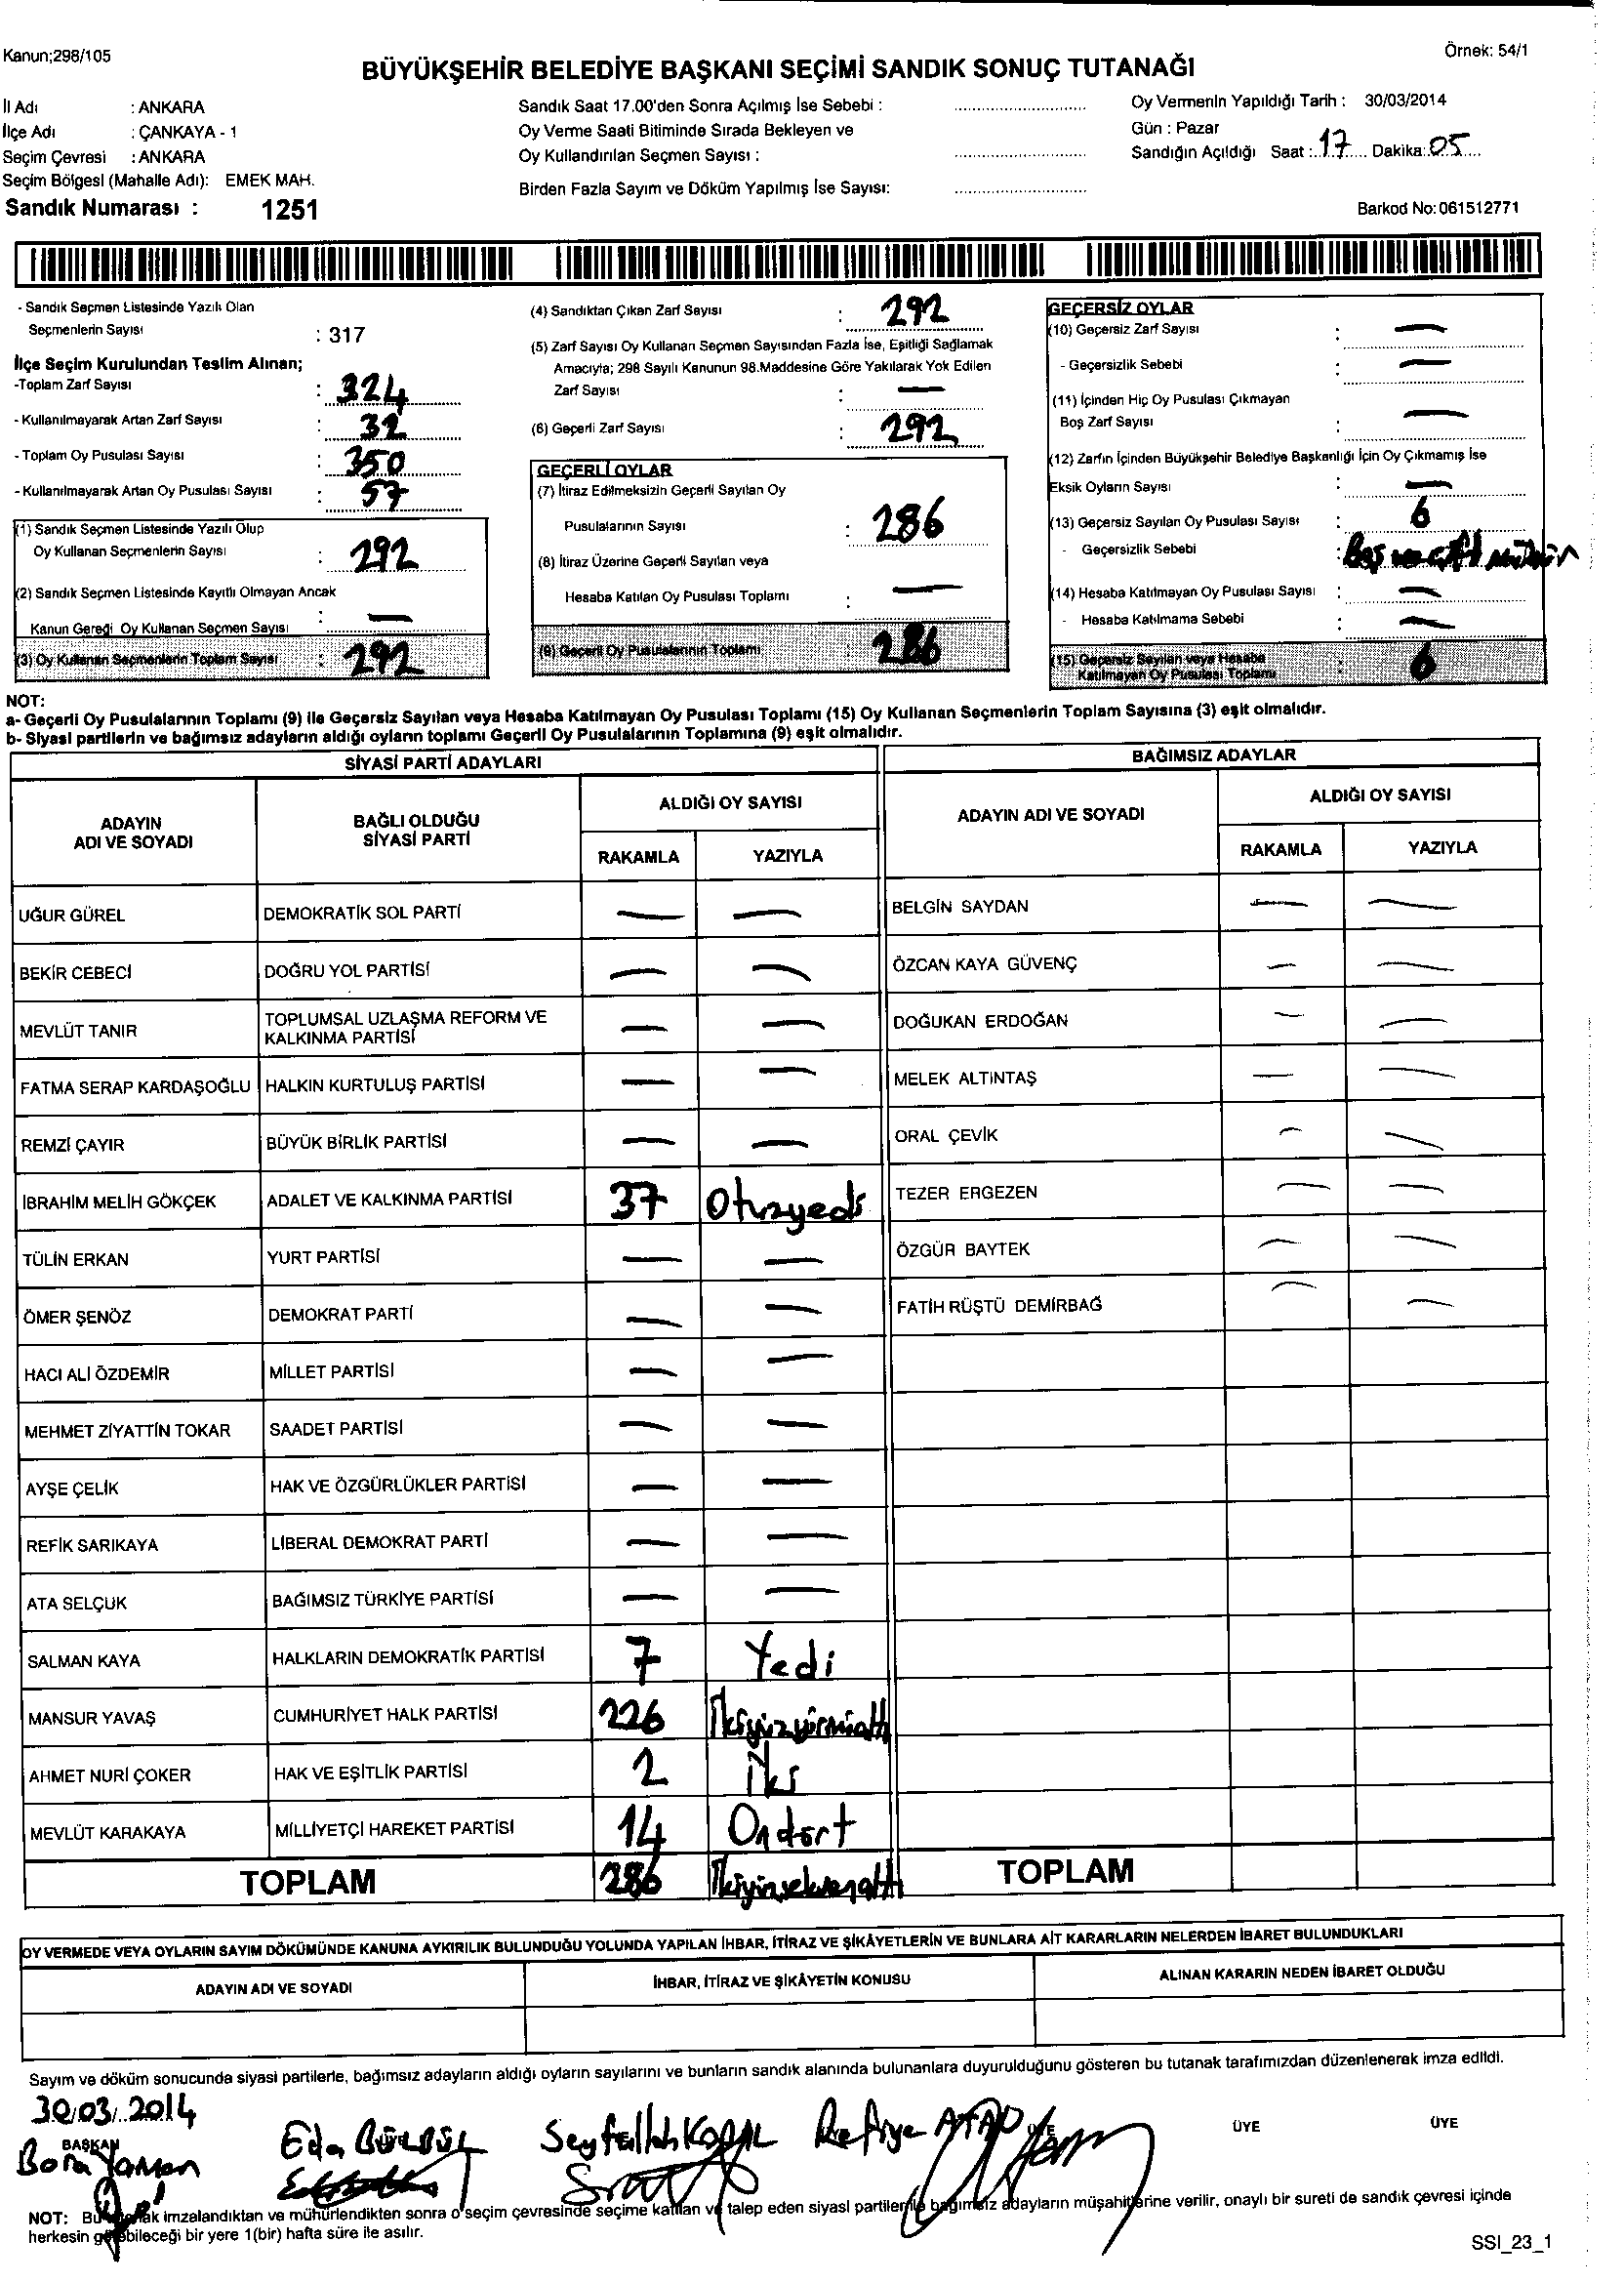 Kanun;298/105
Örnek: 54/1
BÜYÜKŞEHİR BELEDİYE BAŞKANI SEÇİMİ SANDIK SONUÇ TUTANAĞI
İl Adı : ANKARA
İlçe Adı : ÇANKAYA - 1
Seçim Çevresi : ANKARA
Seçim Bölgesi (Mahalle Adı): EMEK MAH.
Sandık Numarası : 1251
Sandık Saat 17.00'den Sonra Açılmış İse Sebebi :
Oy Verme Saati Bitiminde Sırada Bekleyen ve
Oy Kullandırılan Seçmen Sayısı :
Birden Fazla Sayım ve Döküm Yapılmış İse Sayısı:
Oy Vermenin Yapıldığı Tarih : 30/03/2014
Gün : Pazar
Sandığın Açıldığı Saat : 17 Dakika: 05
Barkod No: 061512771
- Sandık Seçmen Listesinde Yazılı Olan
Seçmenlerin Sayısı : 317
İlçe Seçim Kurulundan Teslim Alınan;
-Toplam Zarf Sayısı : 324
- Kullanılmayarak Artan Zarf Sayısı : 32
- Toplam Oy Pusulası Sayısı : 350
- Kullanılmayarak Artan Oy Pusulası Sayısı : 57
(1) Sandık Seçmen Listesinde Yazılı Olup
Oy Kullanan Seçmenlerin Sayısı : 292
(2) Sandık Seçmen Listesinde Kayıtlı Olmayan Ancak
Kanun Gereği Oy Kullanan Seçmen Sayısı : —
(3) Oy Kullanan Seçmenlerin Toplam Sayısı : 292
(4) Sandıktan Çıkan Zarf Sayısı : 292
(5) Zarf Sayısı Oy Kullanan Seçmen Sayısından Fazla İse, Eşitliği Sağlamak
Amacıyla; 298 Sayılı Kanunun 98.Maddesine Göre Yakılarak Yok Edilen
Zarf Sayısı : —
(6) Geçerli Zarf Sayısı : 292
GEÇERLİ OYLAR
(7) İtiraz Edilmeksizin Geçerli Sayılan Oy
Pusulalarının Sayısı : 286
(8) İtiraz Üzerine Geçerli Sayılan veya
Hesaba Katılan Oy Pusulası Toplamı : —
(9) Geçerli Oy Pusulalarının Toplamı : 286
GEÇERSİZ OYLAR
(10) Geçersiz Zarf Sayısı : —
- Geçersizlik Sebebi —
(11) İçinden Hiç Oy Pusulası Çıkmayan
Boş Zarf Sayısı : —
(12) Zarfın İçinden Büyükşehir Belediye Başkanlığı İçin Oy Çıkmamış İse
Eksik Oyların Sayısı : —
(13) Geçersiz Sayılan Oy Pusulası Sayısı : 6
- Geçersizlik Sebebi : Boş ve çift mühür
(14) Hesaba Katılmayan Oy Pusulası Sayısı : —
- Hesaba Katılmama Sebebi : —
(15) Geçersiz Sayılan veya Hesaba
Katılmayan Oy Pusulası Toplamı : 6
NOT:
a- Geçerli Oy Pusulalarının Toplamı (9) ile Geçersiz Sayılan veya Hesaba Katılmayan Oy Pusulası Toplamı (15) Oy Kullanan Seçmenlerin Toplam Sayısına (3) eşit olmalıdır.
b- Siyasi partilerin ve bağımsız adayların aldığı oyların toplamı Geçerli Oy Pusulalarının Toplamına (9) eşit olmalıdır.
SİYASİ PARTİ ADAYLARI
ADAYIN ADI VE SOYADI BAĞLI OLDUĞU SİYASİ PARTİ ALDIĞI OY SAYISI
RAKAMLA YAZIYLA
UĞUR GÜREL DEMOKRATİK SOL PARTİ — —
BEKİR CEBECİ DOĞRU YOL PARTİSİ — —
MEVLÜT TANIR TOPLUMSAL UZLAŞMA REFORM VE KALKINMA PARTİSİ — —
FATMA SERAP KARDAŞOĞLU HALKIN KURTULUŞ PARTİSİ — —
REMZİ ÇAYIR BÜYÜK BİRLİK PARTİSİ — —
İBRAHİM MELİH GÖKÇEK ADALET VE KALKINMA PARTİSİ 37 Otuzyedi
TÜLİN ERKAN YURT PARTİSİ — —
ÖMER ŞENÖZ DEMOKRAT PARTİ — —
HACI ALİ ÖZDEMİR MİLLET PARTİSİ — —
MEHMET ZİYATTİN TOKAR SAADET PARTİSİ — —
AYŞE ÇELİK HAK VE ÖZGÜRLÜKLER PARTİSİ — —
REFİK SARIKAYA LİBERAL DEMOKRAT PARTİ — —
ATA SELÇUK BAĞIMSIZ TÜRKİYE PARTİSİ — —
SALMAN KAYA HALKLARIN DEMOKRATİK PARTİSİ 7 Yedi
MANSUR YAVAŞ CUMHURİYET HALK PARTİSİ 226 İkiyüzyirmialtı
AHMET NURİ ÇOKER HAK VE EŞİTLİK PARTİSİ 2 İki
MEVLÜT KARAKAYA MİLLİYETÇİ HAREKET PARTİSİ 14 Ondört
TOPLAM 286 İkiyüzseksenaltı
BAĞIMSIZ ADAYLAR
ADAYIN ADI VE SOYADI ALDIĞI OY SAYISI
RAKAMLA YAZIYLA
BELGİN SAYDAN — —
ÖZCAN KAYA GÜVENÇ — —
DOĞUKAN ERDOĞAN — —
MELEK ALTINTAŞ — —
ORAL ÇEVİK — —
TEZER ERGEZEN — —
ÖZGÜR BAYTEK — —
FATİH RÜŞTÜ DEMİRBAĞ — —
TOPLAM
OY VERMEDE VEYA OYLARIN SAYIM DÖKÜMÜNDE KANUNA AYKIRILIK BULUNDUĞU YOLUNDA YAPILAN İHBAR, İTİRAZ VE ŞİKÂYETLERİN VE BUNLARA AİT KARARLARIN NELERDEN İBARET BULUNDUKLARI
ADAYIN ADI VE SOYADI İHBAR, İTİRAZ VE ŞİKÂYETİN KONUSU ALINAN KARARIN NEDEN İBARET OLDUĞU
Sayım ve döküm sonucunda siyasi partilerle, bağımsız adayların aldığı oyların sayılarını ve bunların sandık alanında bulunanlara duyurulduğunu gösteren bu tutanak tarafımızdan düzenlenerek imza edildi.
30/03/2014
BAŞKAN ÜYE ÜYE ÜYE
Bora Yaman Eda BÜLBÜL Seyfullah KOÇAL Refiye ATAD
NOT: Bu tutanak imzalandıktan ve mühürlendikten sonra o seçim çevresinde seçime katılan ve talep eden siyasi partilerle bağımsız adayların müşahitlerine verilir, onaylı bir sureti de sandık çevresi içinde
herkesin görebileceği bir yere 1(bir) hafta süre ile asılır.
SSI_23_1